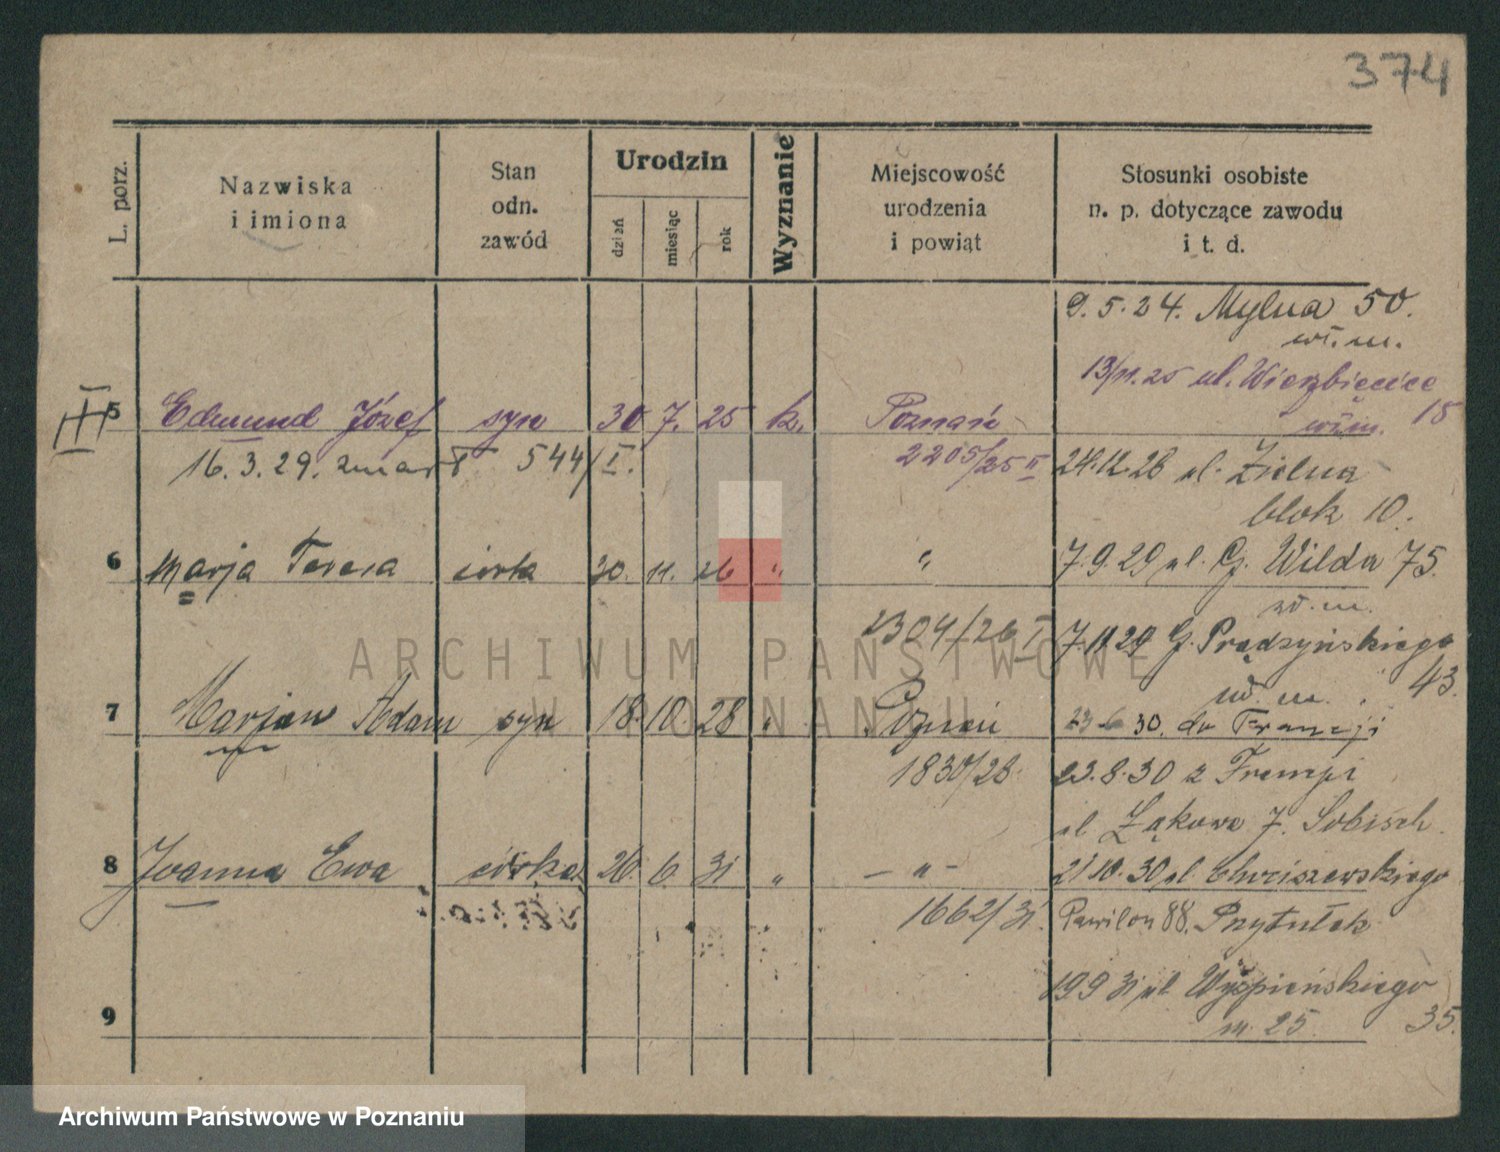 374
L. porz.
Nazwiska
i imiona
Stan
odn.
zawód
Urodzin
dzień
miesiąc
rok
Wyznanie
Miejscowość
urodzenia
i powiąt
Stosunki osobiste
n. p. dotyczące zawodu
i t. d.
9.5.24. Mylna 50.
wł. m.
13/11.25 ul. Wierzbięcice
15
wł. m.
III 5 Edmund Józef syn 30 7. 25 k. Poznań
16.3.29. zmarł 544/I. 2205/25 II 24.12.28 ul. Zielna
blok 10.
6 Marja Teresa córka 30. 11. 26 " " 7.9.29 ul. G. Wilda 75.
wł. m.
2304/26 I 7.11.29 G. Prądzyńskiego
43.
wł. m.
7 Marjan Adam syn 18. 10. 28 " Poznań 23.6.30. do Francji
1830/28 23.8.30 z Francji
ul Łąkowa 7. Sobisch
8 Joanna Ewa córka 26. 6. 31 " - " - 21.10.30 ul
1662/31. Pawilon 88. Przytułek
19.9.31 ul Wyspiańskiego
35.
m. 25
9
ARCHIWUM PAŃSTWOWE
W POZNANIU
Archiwum Państwowe w Poznaniu